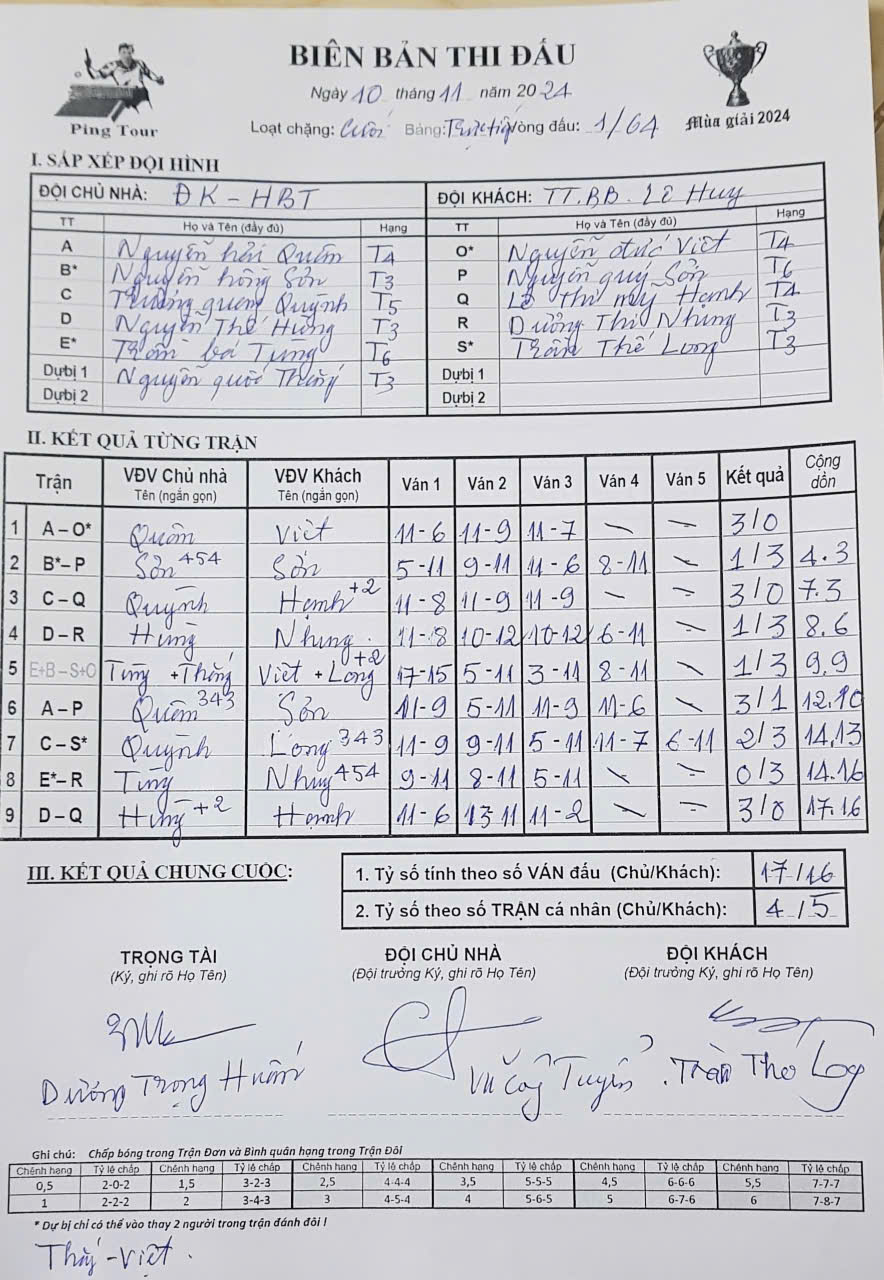 BIÊN BẢN THI ĐẤU
Ngày 10 tháng 11 năm 2024
Ping Tour
Loạt chặng: Cuối Bảng: Trực tiếp Vòng đấu: 1/64
Mùa giải 2024
I. SẮP XẾP ĐỘI HÌNH
ĐỘI CHỦ NHÀ: ĐK - HBT ĐỘI KHÁCH: TT.BB. Lê Huy
TT Họ và Tên (đầy đủ) Hạng TT Họ và Tên (đầy đủ) Hạng
A Nguyễn hải Quân T4 O* Nguyễn đức Việt T4
B* Nguyễn hồng Sơn T3 P Nguyễn quý Sơn T6
C Trương quang Quỳnh T5 Q Lê thị mỹ Hạnh T4
D Nguyễn Thế Hùng T3 R Dương Thị Nhung T3
E* Trần bá Tùng T6 S* Trần Thế Long T3
Dự bị 1 Nguyễn quốc Thắng T3 Dự bị 1
Dự bị 2 Dự bị 2
II. KẾT QUẢ TỪNG TRẬN
Trận VĐV Chủ nhà Tên (ngắn gọn) VĐV Khách Tên (ngắn gọn) Ván 1 Ván 2 Ván 3 Ván 4 Ván 5 Kết quả Cộng dồn
1 A – O* Quân Việt 11-6 11-9 11-7 – – 3/0
2 B*– P Sơn 454 Sơn 5-11 9-11 11-6 8-11 – 1/3 4.3
3 C – Q Quỳnh Hạnh +2 11-8 11-9 11-9 – – 3/0 7.3
4 D – R Hùng Nhung. 11-8 10-12 10-12 6-11 – 1/3 8.6
5 E+B – S+O Tùng + Thắng Việt + Long +2 17-15 5-11 3-11 8-11 – 1/3 9.9
6 A – P Quân 343 Sơn 11-9 5-11 11-9 11-6 – 3/1 12.10
7 C – S* Quỳnh Long 343 11-9 9-11 5-11 11-7 6-11 2/3 14,13
8 E*– R Tùng Nhung 454 9-11 8-11 5-11 – – 0/3 14.16
9 D – Q Hùng +2 Hạnh 11-6 13-11 11-2 – – 3/0 17.16
III. KẾT QUẢ CHUNG CUỘC:
1. Tỷ số tính theo số VÁN đấu (Chủ/Khách): 17/16
2. Tỷ số theo số TRẬN cá nhân (Chủ/Khách): 4/5
TRỌNG TÀI ĐỘI CHỦ NHÀ ĐỘI KHÁCH
(Ký, ghi rõ Họ Tên) (Đội trưởng Ký, ghi rõ Họ Tên) (Đội trưởng Ký, ghi rõ Họ Tên)
Dương Trọng Huấn Vũ Tuyển. Trần Thế Long
Ghi chú: Chấp bóng trong Trận Đơn và Bình quân hạng trong Trận Đôi
Chênh hạng Tỷ lệ chấp Chênh hạng Tỷ lệ chấp Chênh hạng Tỷ lệ chấp Chênh hạng Tỷ lệ chấp Chênh hạng Tỷ lệ chấp Chênh hạng Tỷ lệ chấp
0,5 2-0-2 1,5 3-2-3 2,5 4-4-4 3,5 5-5-5 4,5 6-6-6 5,5 7-7-7
1 2-2-2 2 3-4-3 3 4-5-4 4 5-6-5 5 6-7-6 6 7-8-7
* Dự bị chỉ có thể vào thay 2 người trong trận đánh đôi !
- Việt.